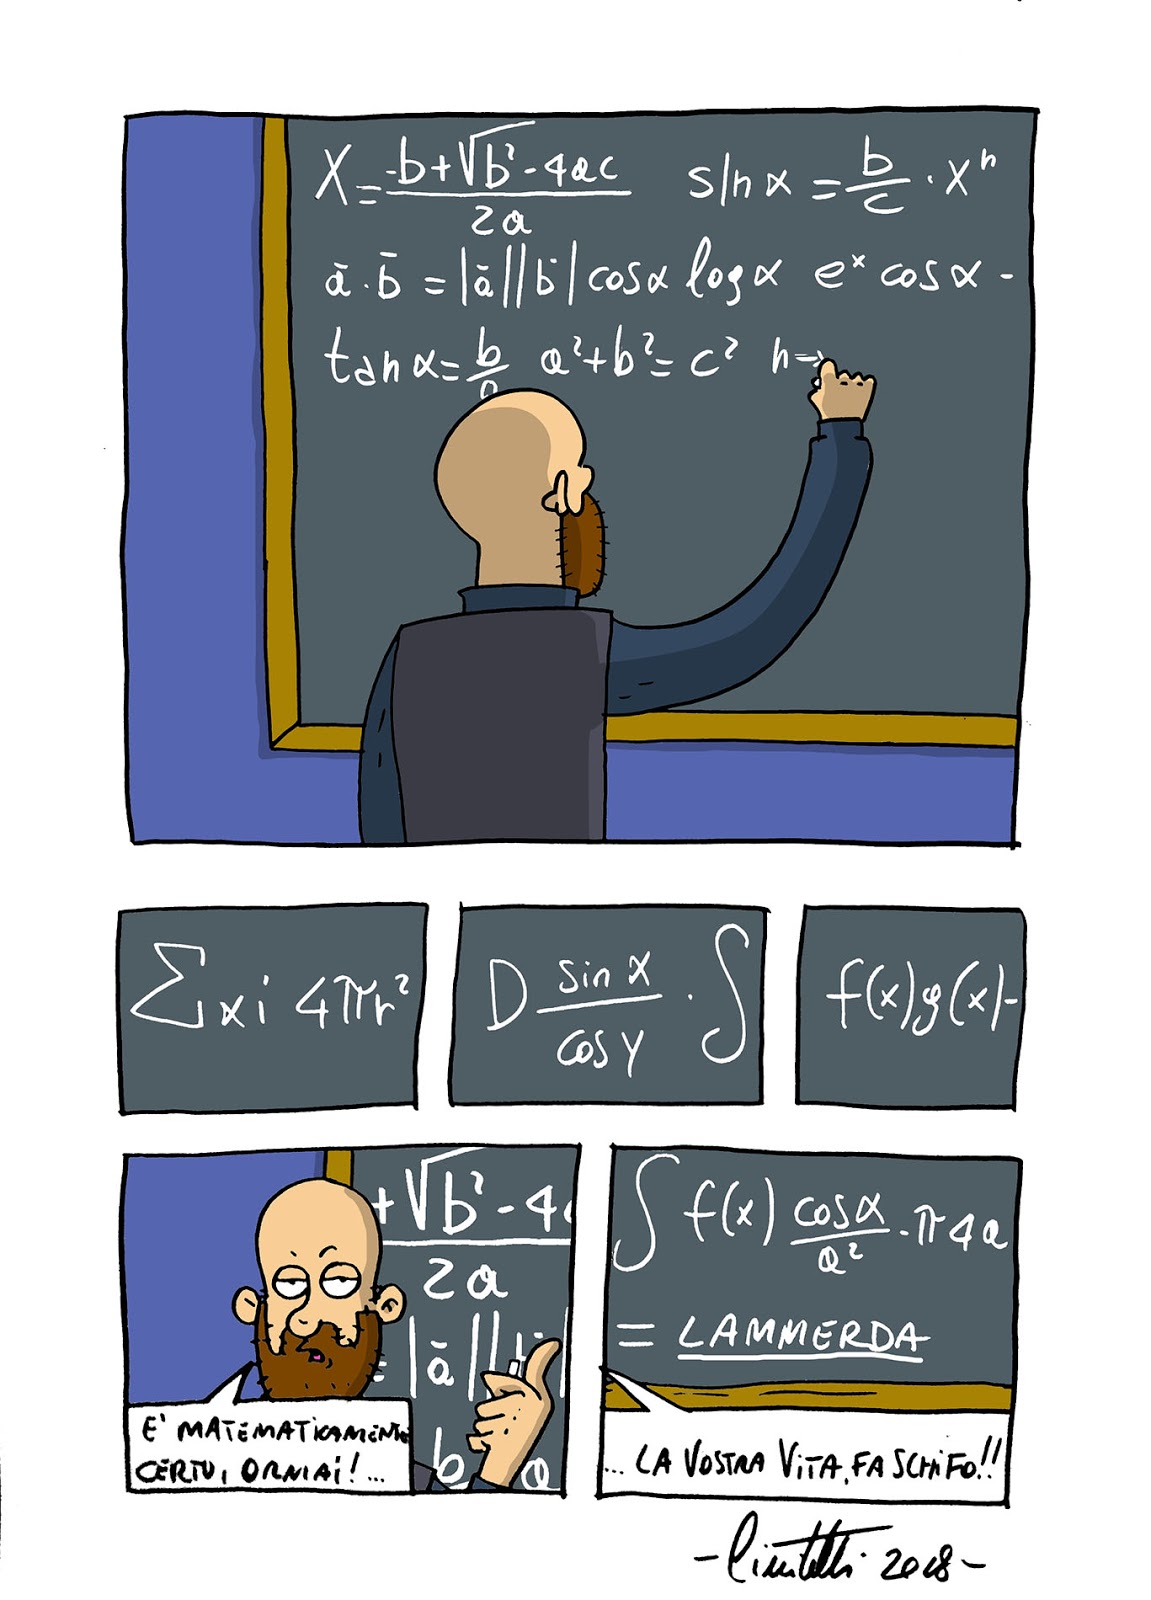 X = -b+√b²-4ac / 2a   sin α = b/c · Xⁿ
ā · b̄ = |ā||b̄| cosα log α eˣ cos α -
tan α = b/a a²+b²=c² n→
Σxi 4πr²
D sin x / cos y · ∫
f(x)g(x)-
+√b²-4
2a
= |ā||
b a
E' MATEMATICAMENTE
CERTO, ORMAI!...
∫ f(x) cosα / a² · π4a
= LAMMERDA
... LA VOSTRA VITA, FA SCHIFO!!
2018-